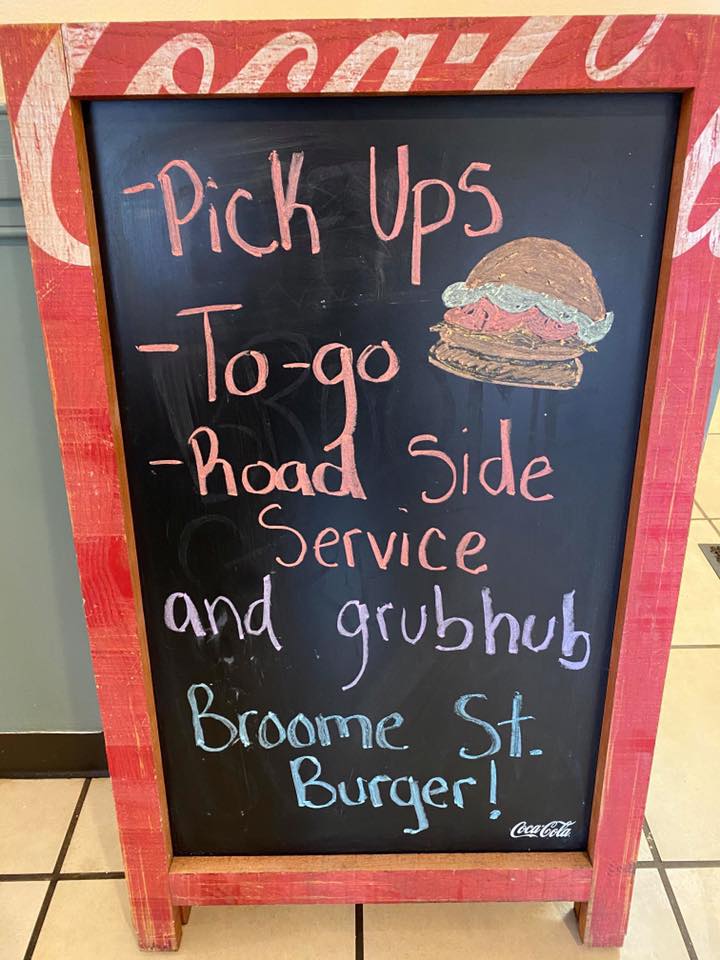 Coca-Co
-Pick Ups
-To-go
-Road Side
Service
and grubhub
Broome St.
Burger!
Coca-Cola